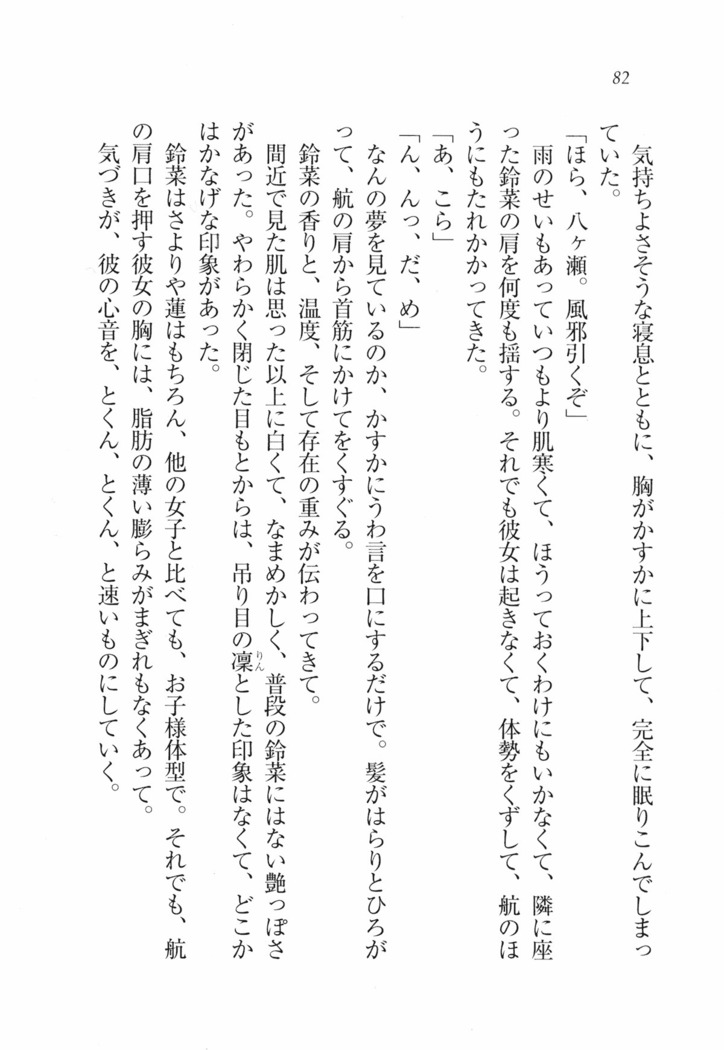 82
気持ちよさそうな寝息とともに、胸がかすかに上下して、完全に眠りこんでしまっ
ていた。
「ほら、八ヶ瀬。風邪引くぞ」
雨のせいもあっていつもより肌寒くて、ほうっておくわけにもいかなくて、隣に座
った鈴菜の肩を何度も揺する。それでも彼女は起きなくて、体勢をくずして、航のほ
うにもたれかかってきた。
「あ、こら」
「ん、んっ、だ、め」
なんの夢を見ているのか、かすかにうわ言を口にするだけで。髪がはらりとひろが
って、航の肩から首筋にかけてをくすぐる。
鈴菜の香りと、温度、そして存在の重みが伝わってきて。
間近で見た肌は思った以上に白くて、なまめかしく、普段の鈴菜にはない艶っぽさ
があった。やわらかく閉じた目もとからは、吊り目の凛とした印象はなくて、どこか
りん
はかなげな印象があった。
鈴菜はさよりや蓮はもちろん、他の女子と比べても、お子様体型で。それでも、航
の肩口を押す彼女の胸には、脂肪の薄い膨らみがまぎれもなくあって。
気づきが、彼の心音を、とくん、とくん、と速いものにしていく。